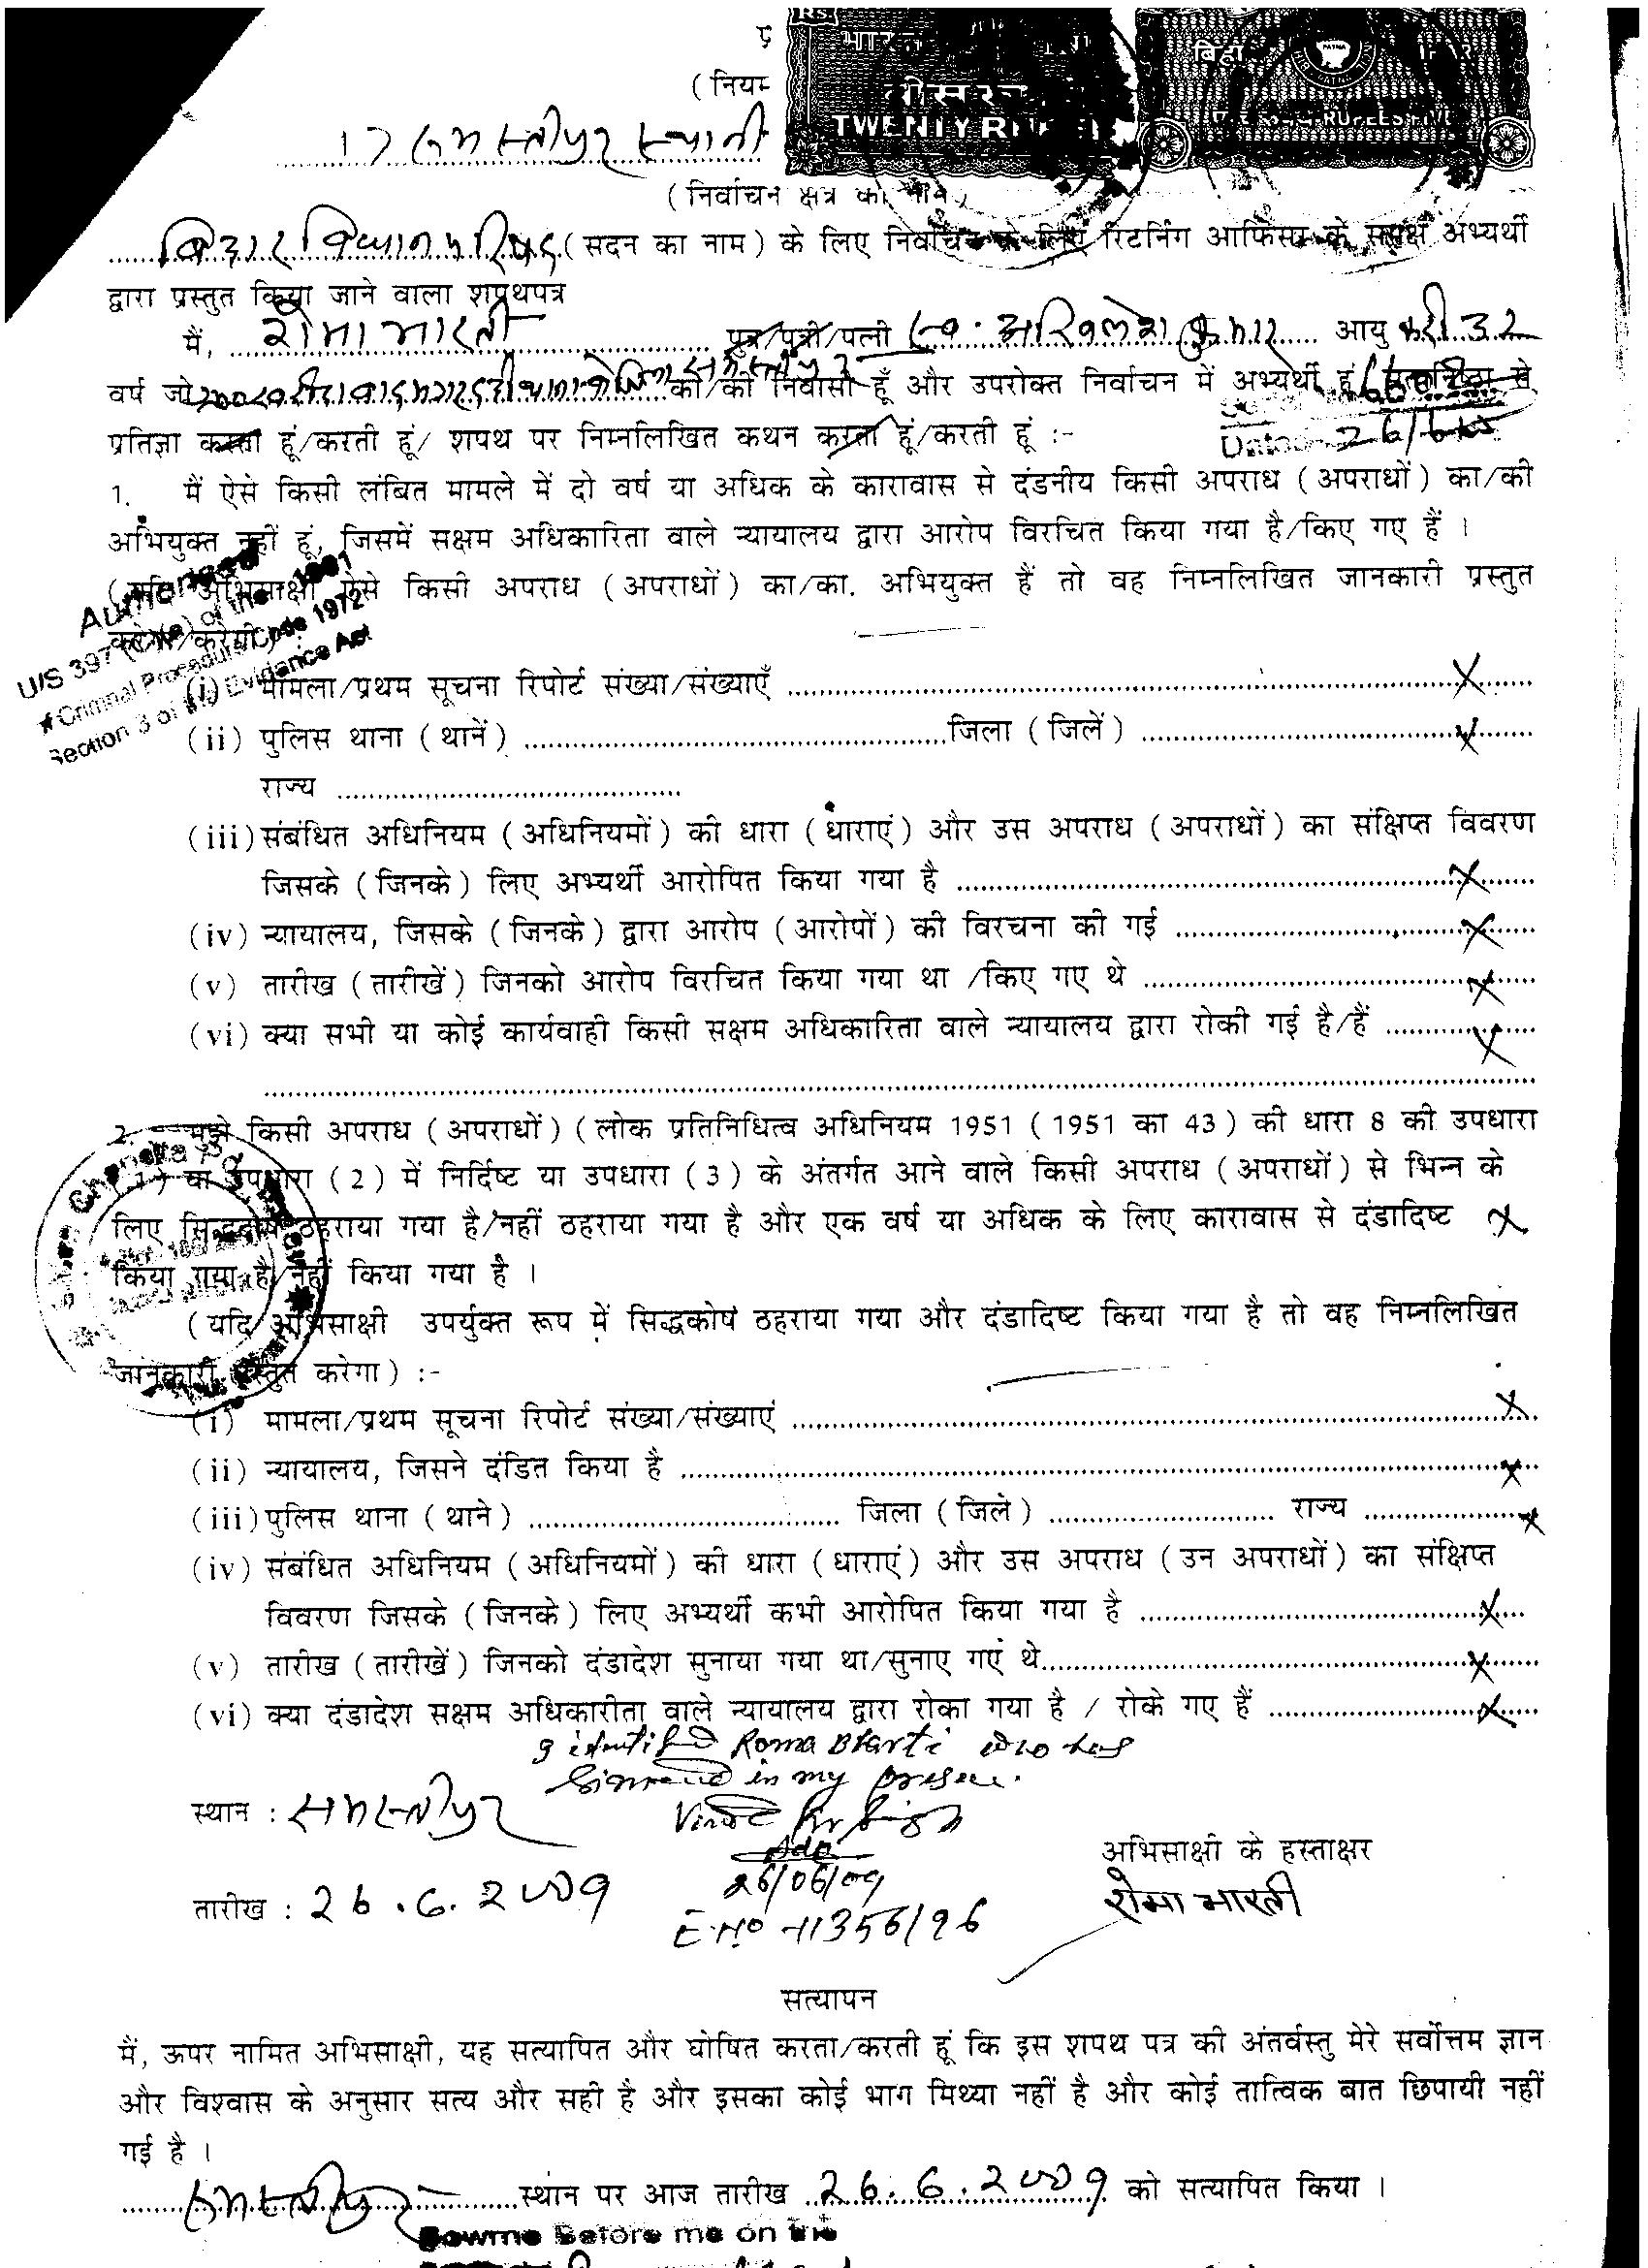 (नियम
TWENTY RU
RUPEES FIVE
17 समस्तीपुर स्थानी
(निर्वाचन क्षेत्र का नाम)
बिहार विधान परिषद (सदन का नाम) के लिए निर्वाचन के लिए रिटर्निंग आफिसर के समक्ष अभ्यर्थी
द्वारा प्रस्तुत किया जाने वाला शपथपत्र
मैं, रोमा भारती पुत्र/पुत्री/पत्नी स्व. अखिलेश कुमार आयु करीब 32
वर्ष जो का/की निवासी हूँ और उपरोक्त निर्वाचन में अभ्यर्थी हूं सत्यनिष्ठा से
प्रतिज्ञा करता हूं/करती हूं/ शपथ पर निम्नलिखित कथन करता हूं/करती हूं :-
1. मैं ऐसे किसी लंबित मामले में दो वर्ष या अधिक के कारावास से दंडनीय किसी अपराध (अपराधों) का/की
अभियुक्त नहीं हूं, जिसमें सक्षम अधिकारिता वाले न्यायालय द्वारा आरोप विरचित किया गया है/किए गए हैं ।
(यदि अभिसाक्षी ऐसे किसी अपराध (अपराधों) का/का. अभियुक्त हैं तो वह निम्नलिखित जानकारी प्रस्तुत
करेगा/करेगी)
U/S 397
Criminal Procedure Code 1972
Section 3 of the Evidence Act
(i) मामला/प्रथम सूचना रिपोर्ट संख्या/संख्याएँ X
(ii) पुलिस थाना (थानें) जिला (जिलें) X
राज्य
(iii) संबंधित अधिनियम (अधिनियमों) की धारा (धाराएं) और उस अपराध (अपराधों) का संक्षिप्त विवरण
जिसके (जिनके) लिए अभ्यर्थी आरोपित किया गया है X
(iv) न्यायालय, जिसके (जिनके) द्वारा आरोप (आरोपों) की विरचना की गई X
(v) तारीख (तारीखें) जिनको आरोप विरचित किया गया था /किए गए थे X
(vi) क्या सभी या कोई कार्यवाही किसी सक्षम अधिकारिता वाले न्यायालय द्वारा रोकी गई है/हैं X
2. मुझे किसी अपराध (अपराधों) (लोक प्रतिनिधित्व अधिनियम 1951 (1951 का 43) की धारा 8 की उपधारा
(1) या उपधारा (2) में निर्दिष्ट या उपधारा (3) के अंतर्गत आने वाले किसी अपराध (अपराधों) से भिन्न के
लिए सिद्धदोष ठहराया गया है/नहीं ठहराया गया है और एक वर्ष या अधिक के लिए कारावास से दंडादिष्ट X
किया गया है/नहीं किया गया है ।
(यदि अभिसाक्षी उपर्युक्त रूप में सिद्धकोष ठहराया गया और दंडादिष्ट किया गया है तो वह निम्नलिखित
जानकारी प्रस्तुत करेगा) :-
(i) मामला/प्रथम सूचना रिपोर्ट संख्या/संख्याएं X
(ii) न्यायालय, जिसने दंडित किया है X
(iii) पुलिस थाना (थाने) जिला (जिले) राज्य X
(iv) संबंधित अधिनियम (अधिनियमों) की धारा (धाराएं) और उस अपराध (उन अपराधों) का संक्षिप्त
विवरण जिसके (जिनके) लिए अभ्यर्थी कभी आरोपित किया गया है X
(v) तारीख (तारीखें) जिनको दंडादेश सुनाया गया था/सुनाए गएं थे X
(vi) क्या दंडादेश सक्षम अधिकारीता वाले न्यायालय द्वारा रोका गया है / रोके गए हैं X
I identified Roma Bharti who has
in my presence.
स्थान : समस्तीपुर
Adv
26/06/09
अभिसाक्षी के हस्ताक्षर
तारीख : 26.6.2009
रोमा भारती
सत्यापन
मैं, ऊपर नामित अभिसाक्षी, यह सत्यापित और घोषित करता/करती हूं कि इस शपथ पत्र की अंतर्वस्तु मेरे सर्वोत्तम ज्ञान
और विश्वास के अनुसार सत्य और सही है और इसका कोई भाग मिथ्या नहीं है और कोई तात्विक बात छिपायी नहीं
गई है ।
समस्तीपुर स्थान पर आज तारीख 26.6.2009 को सत्यापित किया ।
Before me on the